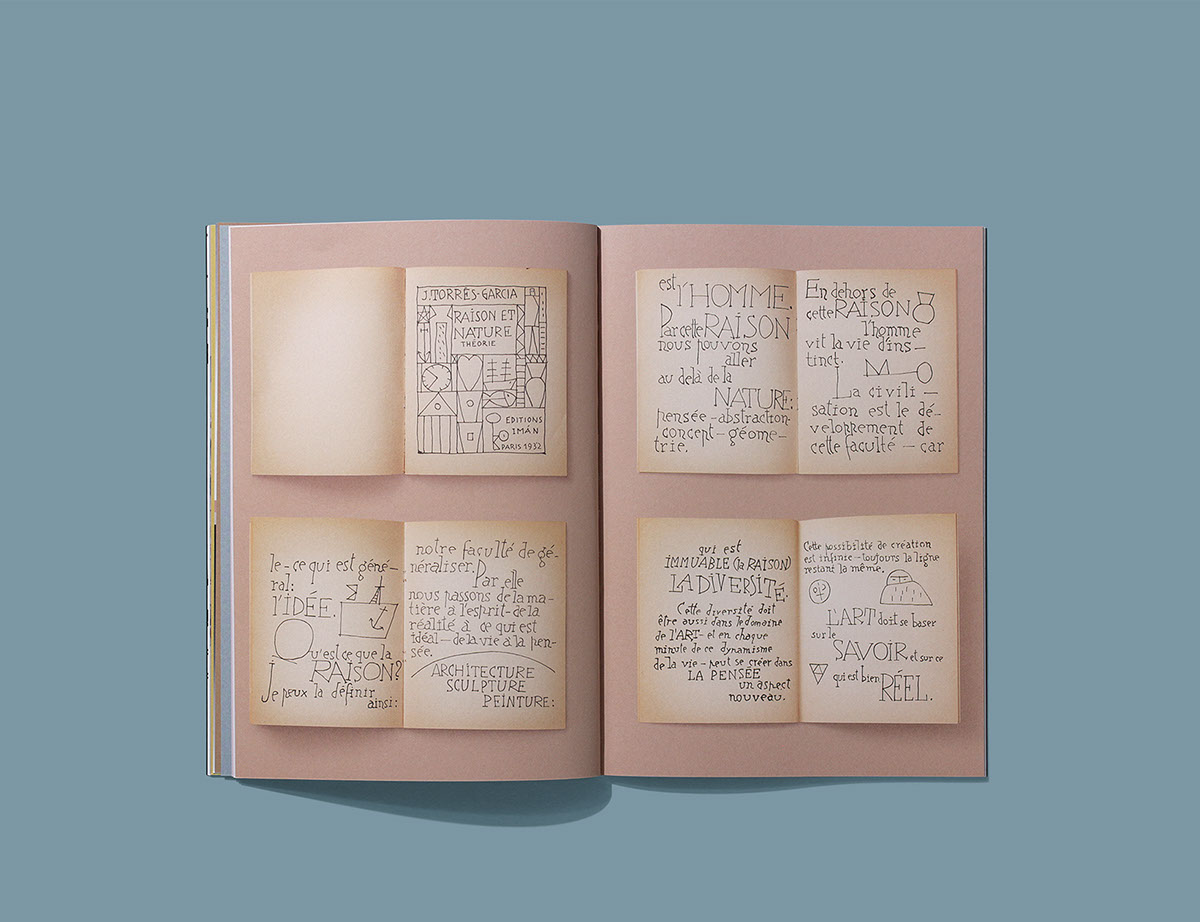 J. TORRÈS-GARCIA
RAISON ET
NATURE
THÉORIE
EDITIONS
IMÁN
PARIS 1932
le-ce qui est géné-
ral:
l'IDÉE.
Qu'est ce que la
RAISON?
je peux la définir
ainsi:
notre faculté de gé-
néraliser. Par elle
nous passons de la ma-
tière à l'esprit-de la
réalité à ce qui est
idéal-de la vie à la pen-
sée.
ARCHITECTURE
SCULPTURE
PEINTURE:
est l'HOMME.
Par cette RAISON
nous pouvons
aller
au delà de la
NATURE:
pensée-abstraction-
concept-géome-
trie.
En dehors de
cette RAISON
l'homme
vit la vie d'ins-
tinct.
La civili-
sation est le dé-
veloppement de
cette faculté-car
qui est
IMMUABLE (la RAISON)
LA DIVERSITÉ.
Cette diversité doit
être aussi dans le domaine
de l'ART-et en chaque
minute de ce dynamisme
de la vie-peut se créer dans
LA PENSÉE
un aspect
nouveau.
Cette possibilité de création
est infinie-toujours la ligne
restant la même.
L'ART doit se baser
sur le
SAVOIR et sur ce
qui est bien RÉEL.